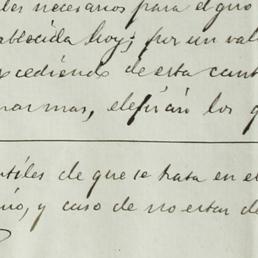 les necesarios para el giro
ablecida hoy; por un val
xcediendo de esta cant
normas, elejirán los q
ntiles de que se trata en el
rio, y caso de no estar de